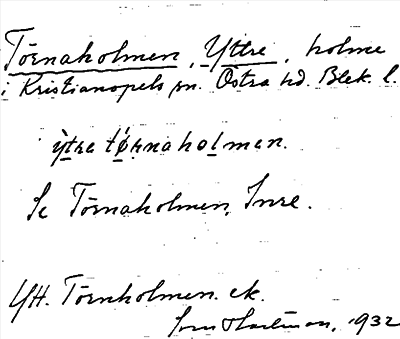 Törnaholmen, Yttre, holme
i Kristianopels sn. Östra hd. Blek. l.
ỳtra tǿrnaholman.
Se Törnaholmen, Inre.
Ytt. Törnholmen. ek.
1932